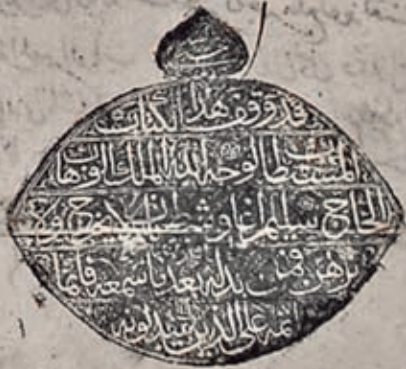 قد وقف هذا الكتاب
المستطاب لوجه الله الملك الوهاب
الحاج سليم اغا وشرط ان لا يخرج ولا
يرهن فمن بدله بعد ما سمعه فانما
اثمه على الذين يبدلونه